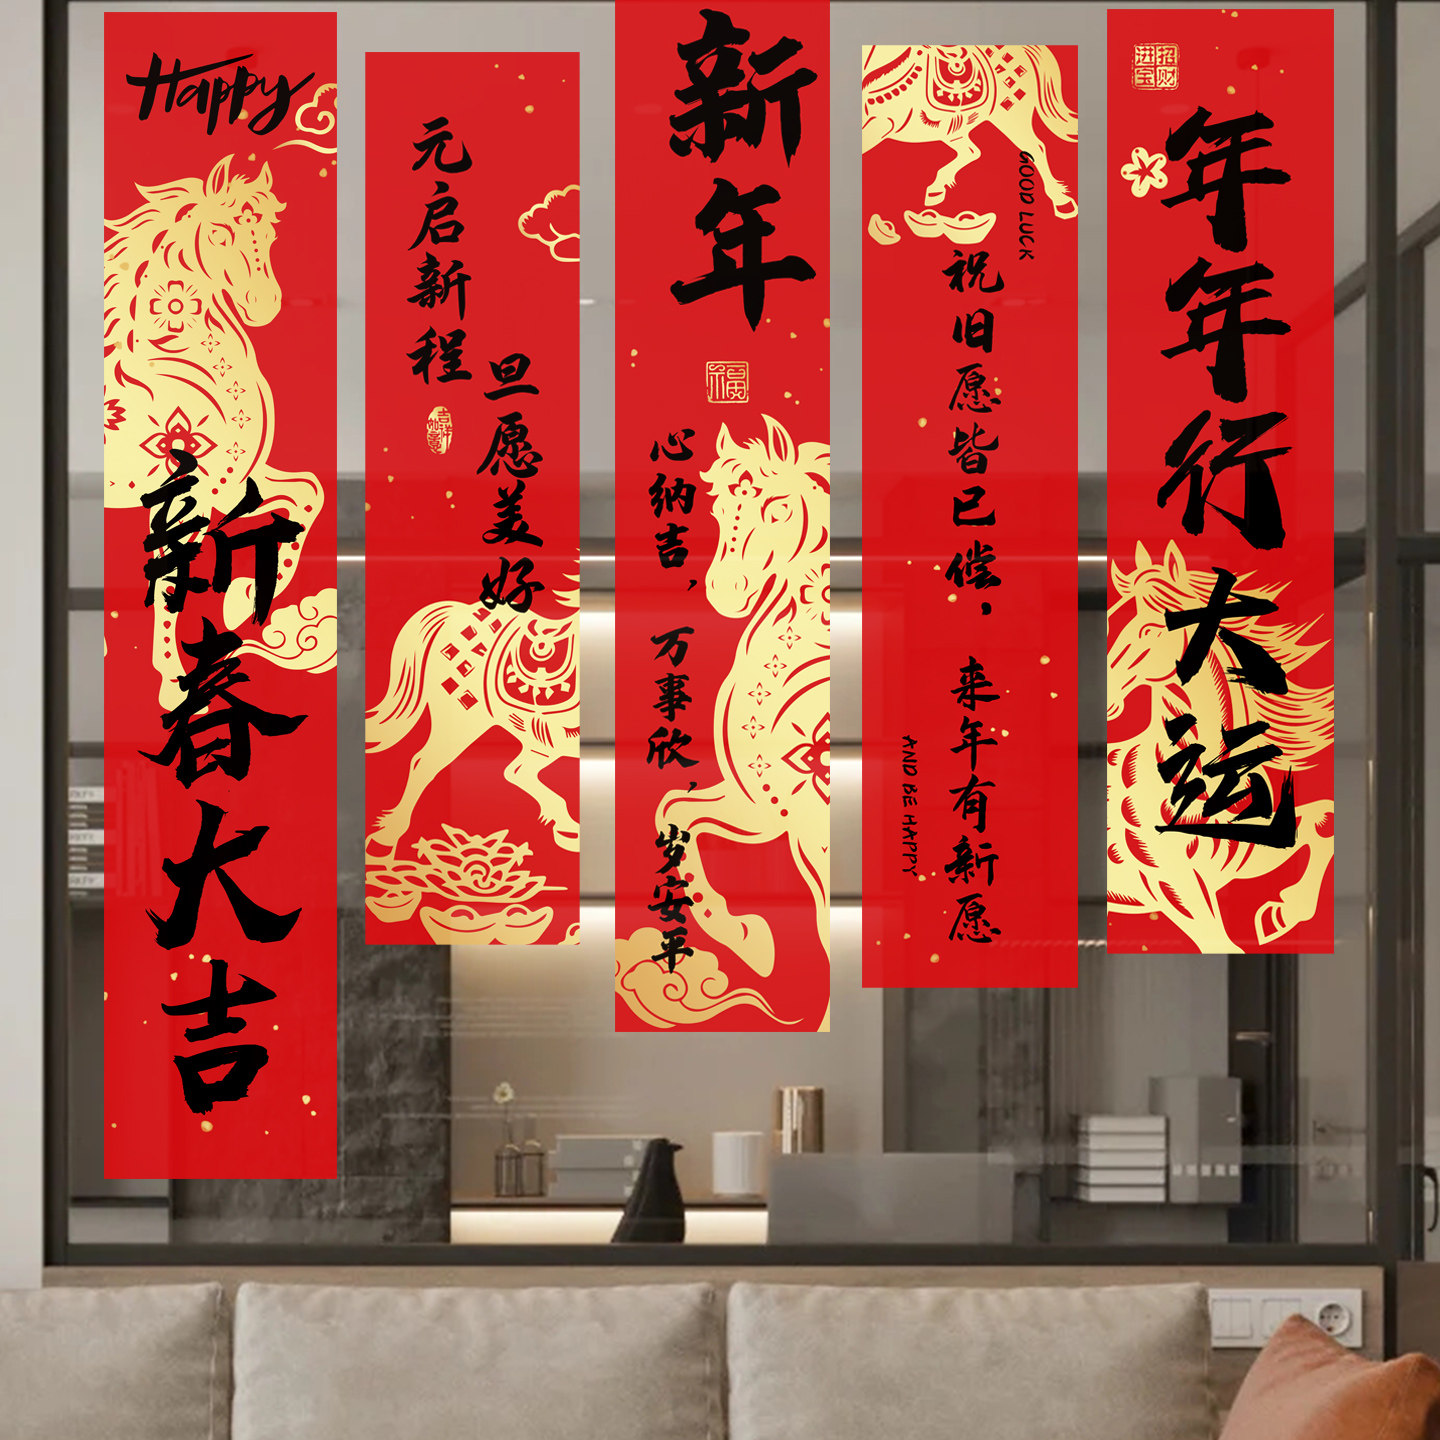 Happy
新春大吉
元启新程
旦愿美好
新年
福
心纳吉，万事欣，岁安平
GOOD LUCK
祝旧愿皆已偿，来年有新愿
AND BE HAPPY
招财进宝
年年行大运